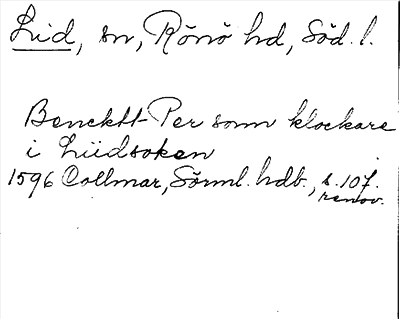 Lid, sn, Rönö hd, Söd. l.
Bencktt Per sonn klockare
i Liidsoken
1596 Collmar, Sörml. hdb., s. 107.
renov.